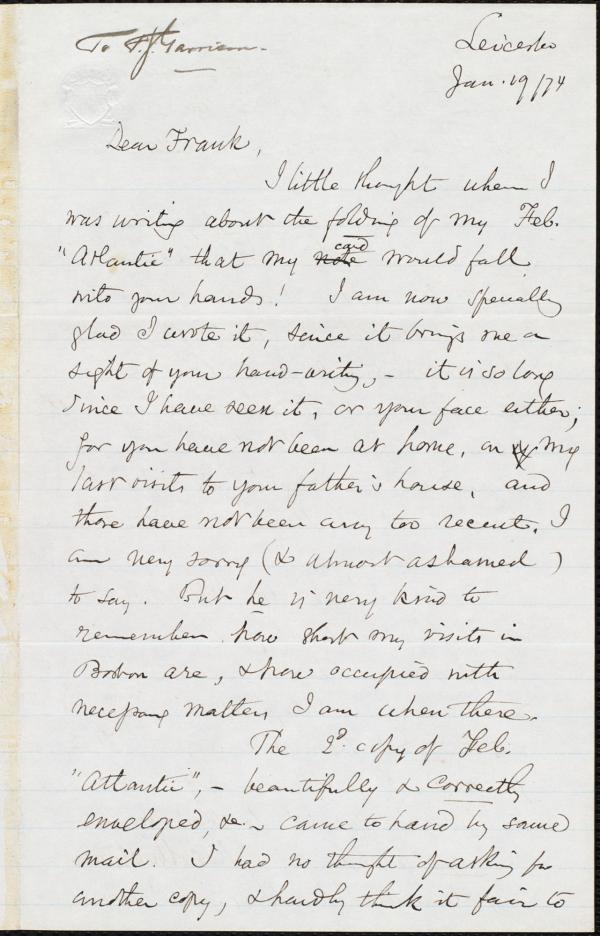 To F. J. Garrison.
Leicester
Jan. 19/74
Dear Frank,
I little thought when I
was writing about the folding of my Feb.
"Atlantic" that my note card would fall
into your hands! I am now specially
glad I wrote it, since it brings me a
sight of your hand-writing, - it is so long
since I have seen it, or your face either;
for you have not been at home, on my
last visits to your father's house, and
those have not been any too recent, I
am very sorry (& almost ashamed)
to say. But he is very kind to
remember how short my visits in
Boston are, & how occupied with
necessary matters I am when there.
The 2d. copy of Feb.
"Atlantic", - beautifully & correctly
enveloped, &c. - came to hand by same
mail. I had no thought of asking for
another copy, & hardly think it fair to